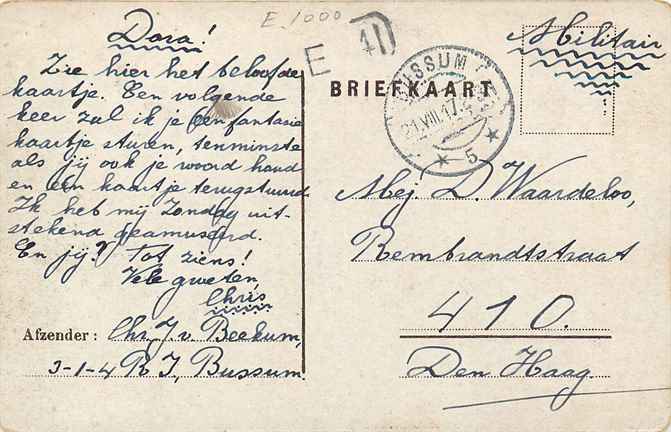 E 1000
E
41
Dora!
Zie hier het beloofde
kaartje. Een volgende
keer zal ik je een fantasie
kaartje sturen, tenminste
als jij ook je woord houd
en een kaartje terugstuurd
Ik heb mij Zondag uit-
stekend geamuseerd.
En jij? Tot ziens!
Vele groeten,
Chris
Afzender: Chr. J. v. Beekum,
3-1-4 R I, Bussum.
BRIEFKAART
BUSSUM
21.VIII.17.
* 5 *
Militair
Mej. D. Waardeloo,
Rembrandtstraat
410.
Den Haag.